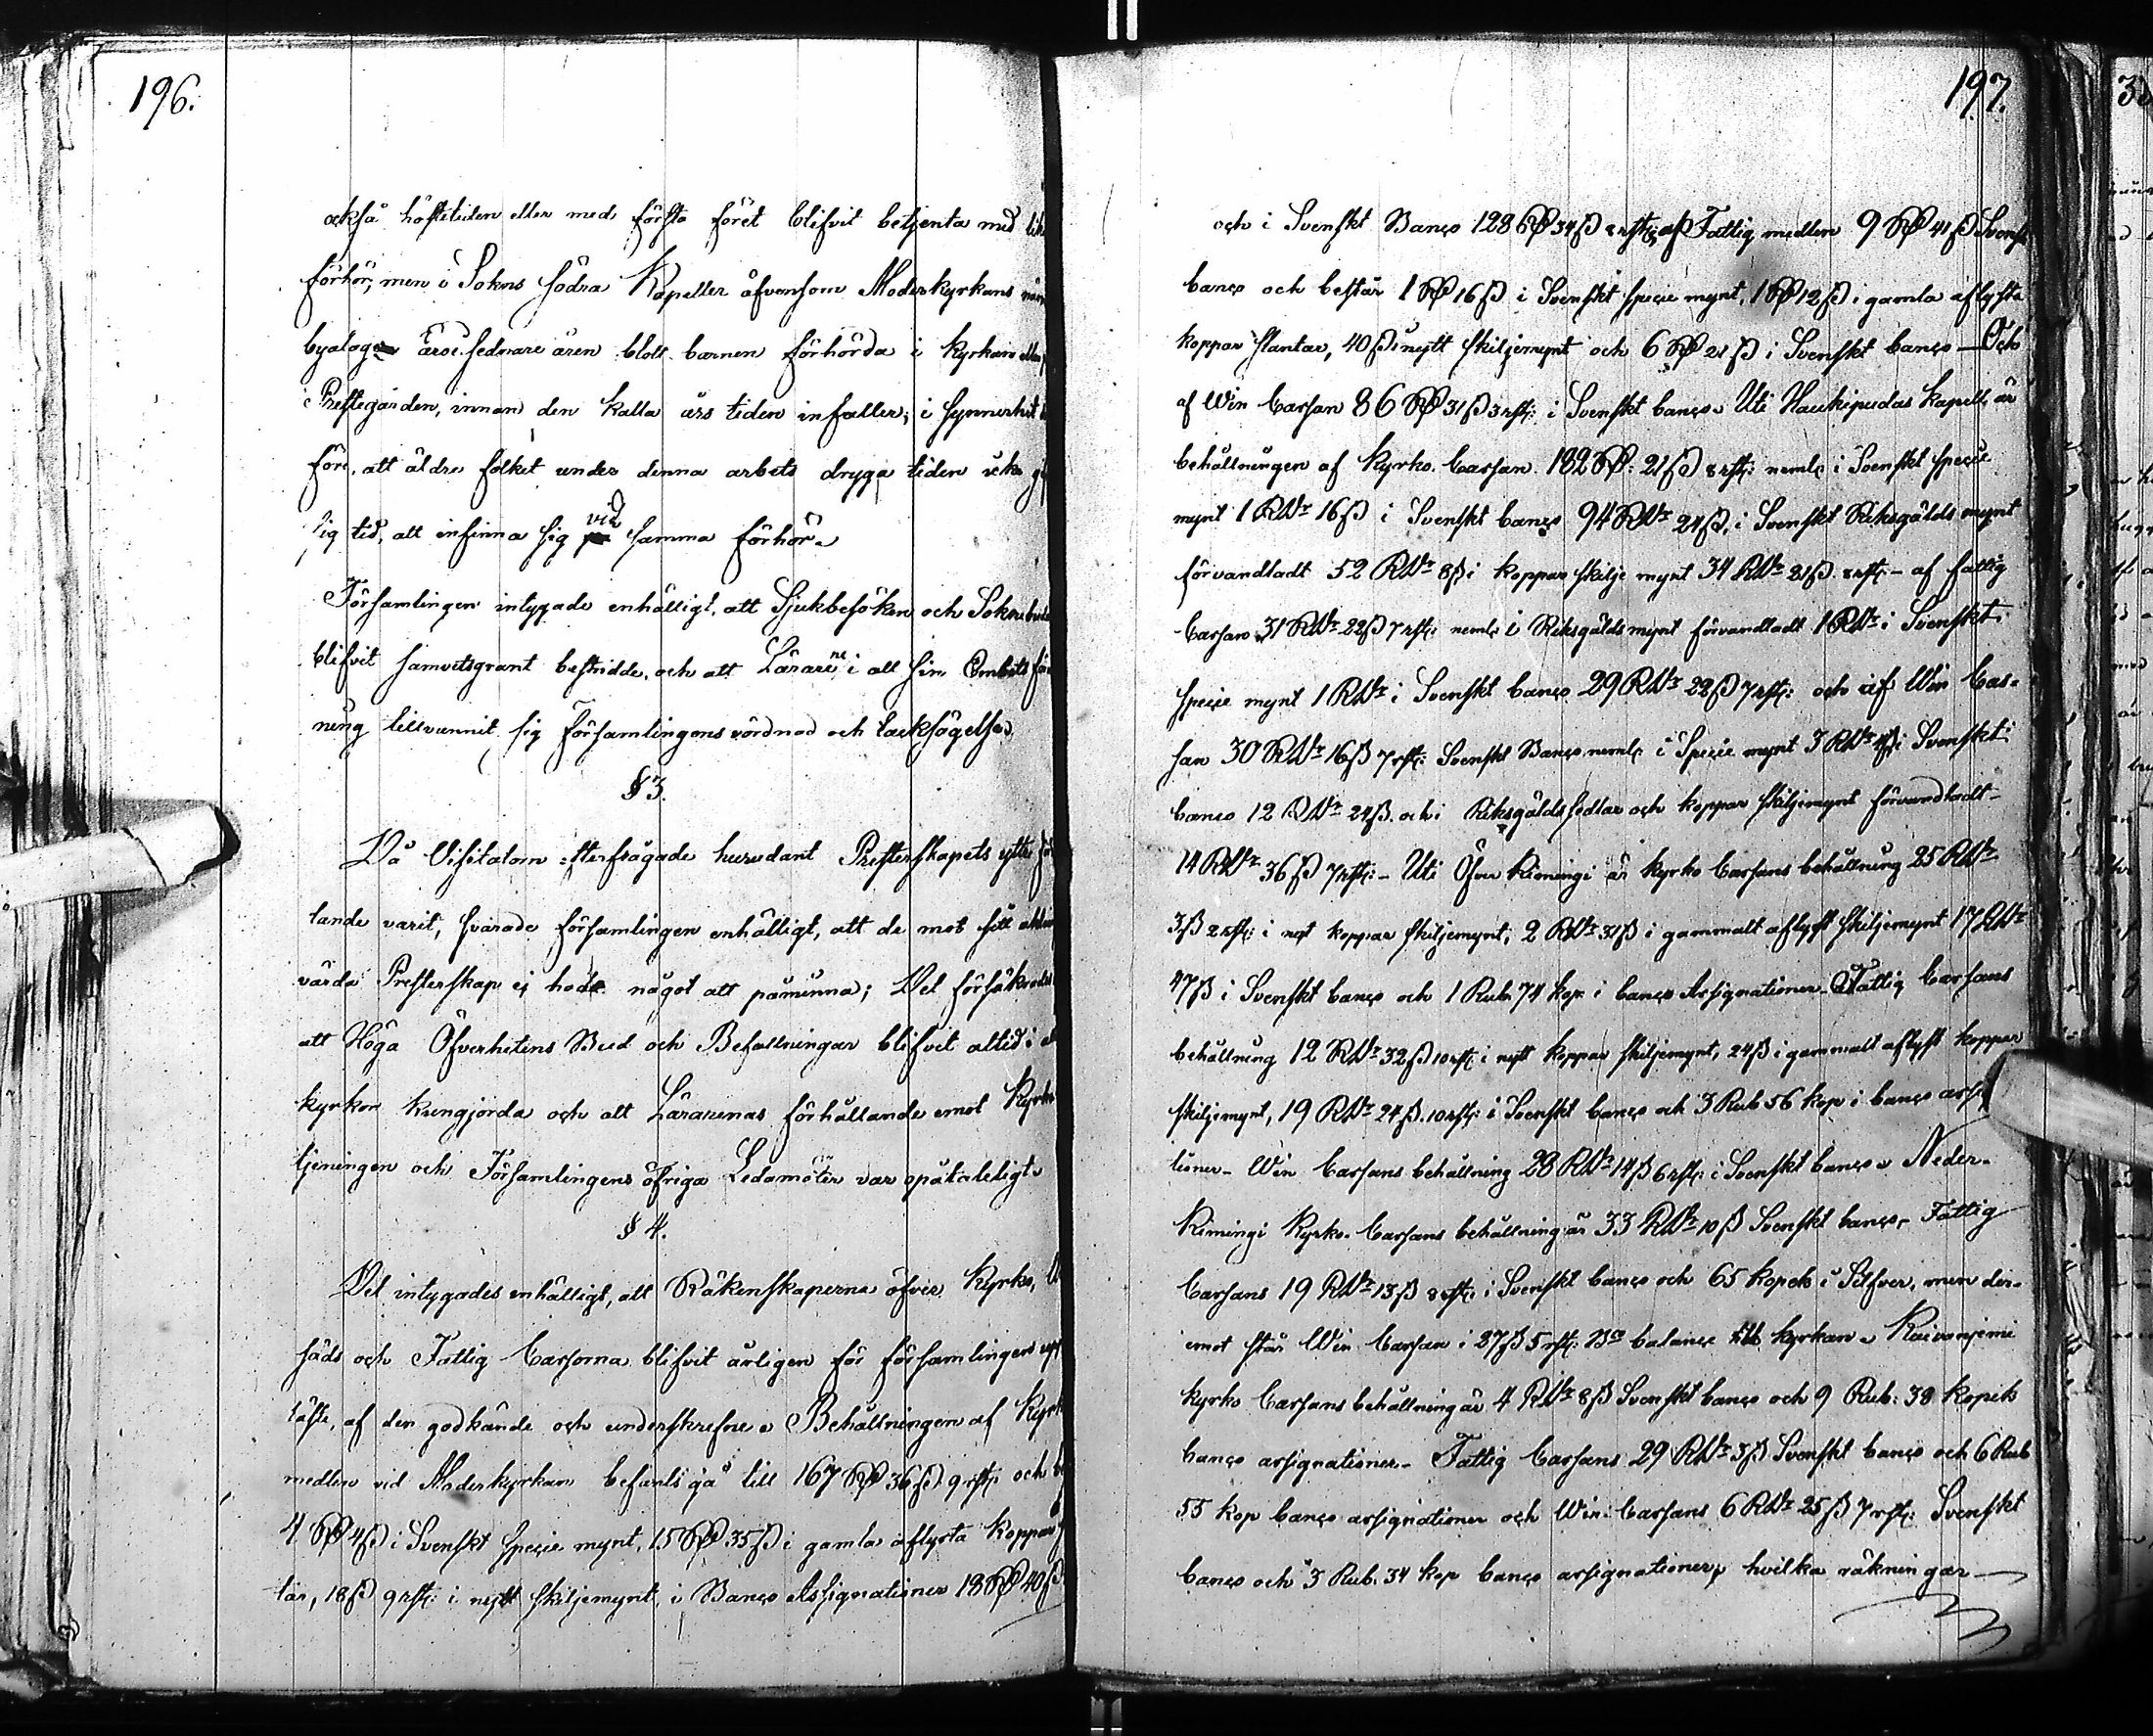 196.
också höstetiden eller med första föret blifvit betjenta med
förhör, men i Sokns södra Kapeller äfvensom Moderkyrkans
byalag sednare åren blott barnen förhörda i kyrkan
i Prestegården, innan den kalla års tiden infaller, i synnerhet
före, att äldre folket under denna arbets dryga tiden icke
sig tid, att infinna sig vid samma förhör.
Församlingen intygade enhälligt, att Sjukbesöken och
blifvit samvetsgrant bestridde, och att Lärarne i all sin Embets
ning tillvunnit sig Församlingens vördnad och tacksägelse.
§ 3.
Då Visitatorn efterfrågade hurudant Presterskapets yttre
lande varit, svarade församlingen enhälligt, att de mot sitt
värda Presterskap ej hade något att påminna; Det försäkrades
att Höga Öfverhetens Bud och Befallningar blifvit altid i
kyrkor kungjorda och att Lärarenas förhållande emot Kyrko
tjeningen och Församlingens öfriga Ledamöter var opåtaleligt.
§ 4.
Det intygades enhälligt, att Räkenskaperna öfver Kyrko,
säds och Fattig Cassorna blifvit årligen för församlingen upp
läste, af den godkände och underskrefne. Behållningen af Kyrk
medlen vid Moderkyrkan befants gå till 167 Rd 36 ß 9 rst: och
4 Rd 4 ß i Svenskt specie mynt, 15 Rd 35 ß i gamla aflysta koppar
tar, 18 ß 9 rst: i nytt skiljemynt, i Banco Assignationer 18 Rd 40 ß
197.
och i Svenskt Banco 128 Rd 34 ß 8 rst: af Fattig medlen 9 Rd 41 ß Svenskt
banco och består 1 Rd 16 ß i Svenskt specie mynt, 1 Rd 12 ß i gamla aflysta
koppar slantar, 40 ß i nytt skiljemynt och 6 Rd 21 ß i Svenskt banco — Och
af Win Cassan 86 Rd 31 ß 3 rst: i Svenskt banco. Uti Haukipudas Kapell är
behållningen af Kyrko Cassan 182 Rd: 21 ß 8 rst: neml: i Svenskt specie
mynt 1 RDr 16 ß i Svenskt banco 94 RDr 24 ß, i Svenskt Riksgälds mynt
förvandladt 52 RDr 8 ß i koppar skilje mynt 34 RDr 21 ß 8 rst: – af fattig
Cassan 31 RDr 22 ß 7 rst: neml: i Riksgälds mynt förvandladt 1 RDr i Svenskt
specie mynt 1 RDr i Svenskt banco 29 RDr 22 ß 7 rst: och af Win Cas-
san 30 RDr 16 ß 7 rst: Svenskt Banco neml: i Specie mynt 3 RDr 4 ß i Svenskt
banco 12 RDr 24 ß och i Riksgälds sedlar och koppar skiljemynt förvandladt –
14 RDr 36 ß 7 rst: – Uti Öfver Kimingi är kyrko Cassans behållning 25 RDr
3 ß 2 rst: i nytt koppar skiljemynt, 2 RDr 31 ß i gammalt aflyst skiljemynt 17 RDr
47 ß i Svenskt banco och 1 Rub. 74 kop i banco Assignationer – Fattig Cassans
behållning 12 RDr 32 ß 10 rst: i nytt koppar skiljemynt, 24 ß i gammalt aflyst koppar
skiljemynt, 19 RDr 24 ß 10 rst: i Svenskt banco och 3 Rub 56 kop i banco
tioner – Win Cassans behållning 28 RDr 14 ß 6 rst: i Svenskt banco. Neder-
Kimingi Kyrko Cassans behållning är 33 RDr 10 ß Svenskt banco, Fattig
Cassans 19 RDr 13 ß 8 rst: i Svenskt banco och 65 kopek i Silfver, men der-
emot står Win Cassan i 27 ß 5 rst: Bco balance till kyrkan. Kuivaniemi
kyrko Cassans behållning är 4 RDr 8 ß Svenskt banco och 9 Rub: 38 kopek
banco assignationer – Fattig Cassans 29 RDr 3 ß Svenskt banco och 6 Rub
55 kop banco assignationer och Win Cassans 6 RDr 25 ß 7 rst: Svenskt
banco och 3 Rub. 34 kop banco assignationer, hvilka räkningar —